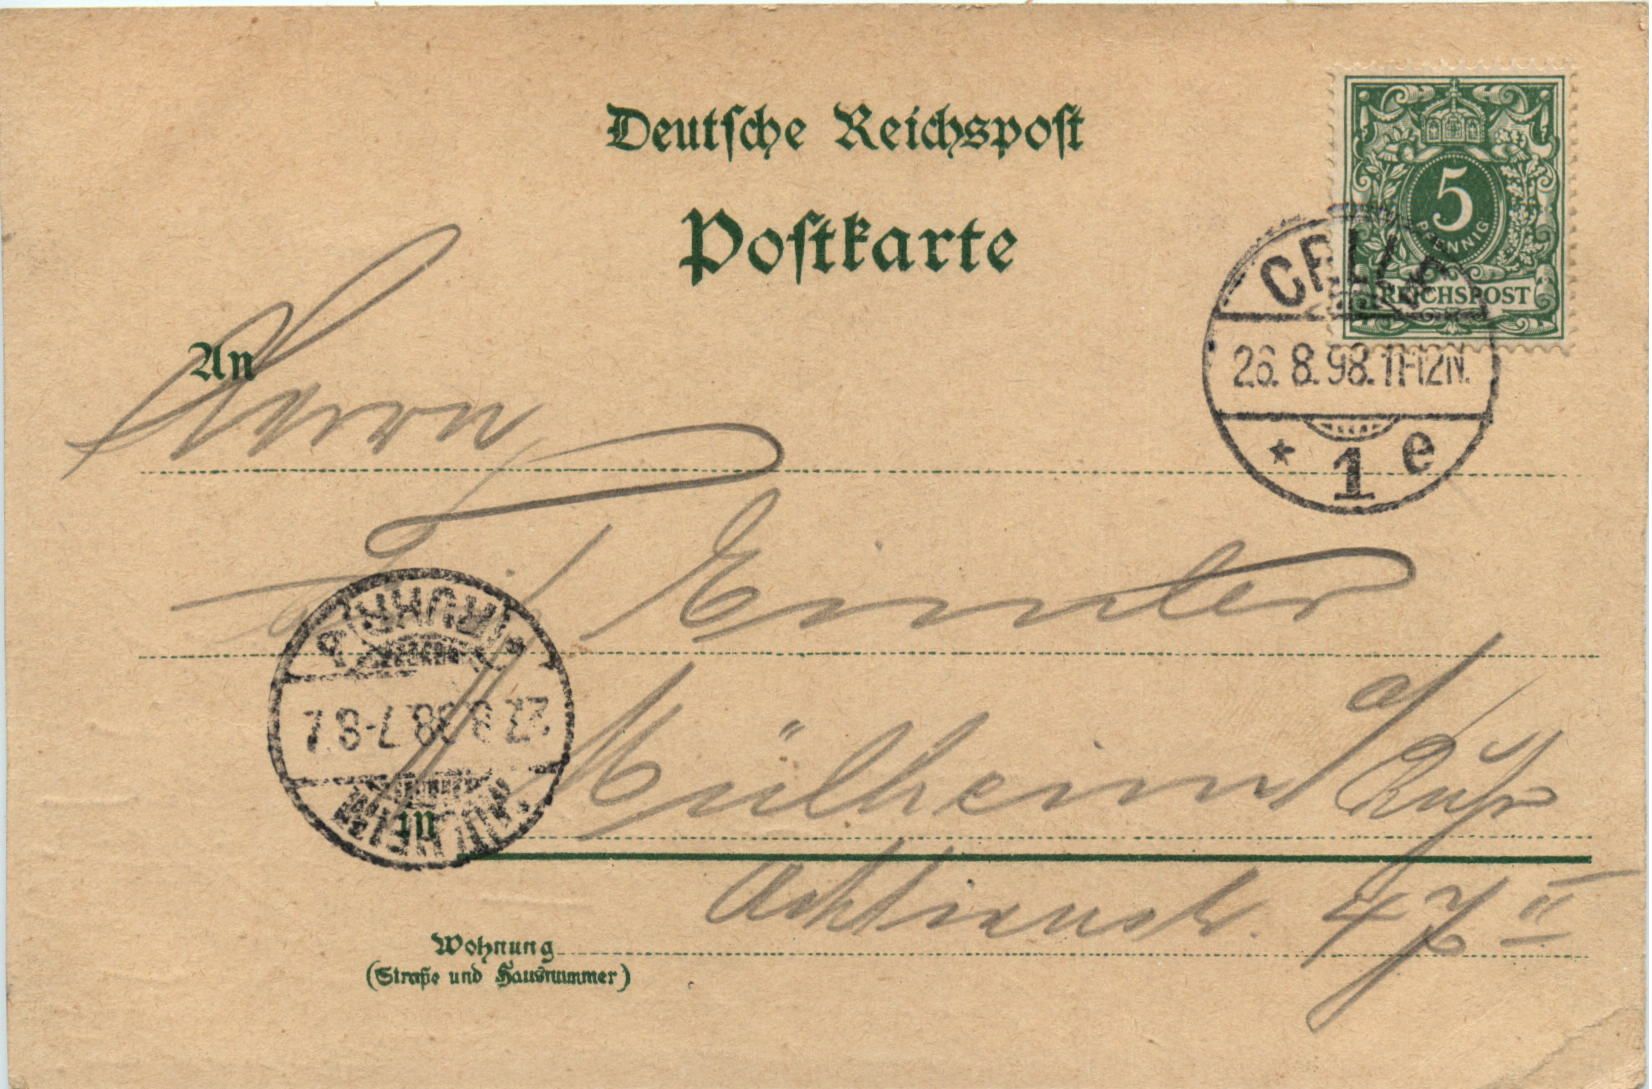 Deutsche Reichspost
Postkarte
5
PFENNIG
REICHSPOST
CELLE
26. 8. 98. 11-12N.
* 1 e
An
Herrn
in Mülheim a/ Ruhr
47 II
Wohnung
(Straße und Hausnummer)
MÜLHEIM
27. 8. 98. 7-8 V.
* (RUHR) *